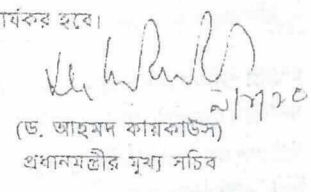 র্যকর হবে।
(ড. আহমদ কায়কাউস)
প্রধানমন্ত্রীর মুখ্য সচিব